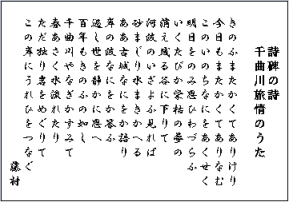 詩碑の詩
千曲川旅情のうた
きのふまたかくてありけり
今日もまたかくてありなむ
このいのちなにをあくせく
明日をのみ思ひわづらふ
いくたびか栄枯の夢の
消え残る谷に下りて
河波のいざよふ見れば
砂まじり水まきかへる
ああ古城なにをか語り
岸の波なにをか答ふ
過し世を静かに思へ
百年もきのふの如し
千曲川やなぎかすみて
春あさく水流れたり
ただ独り岩をめぐりて
この岸にうれひをつなぐ
藤村